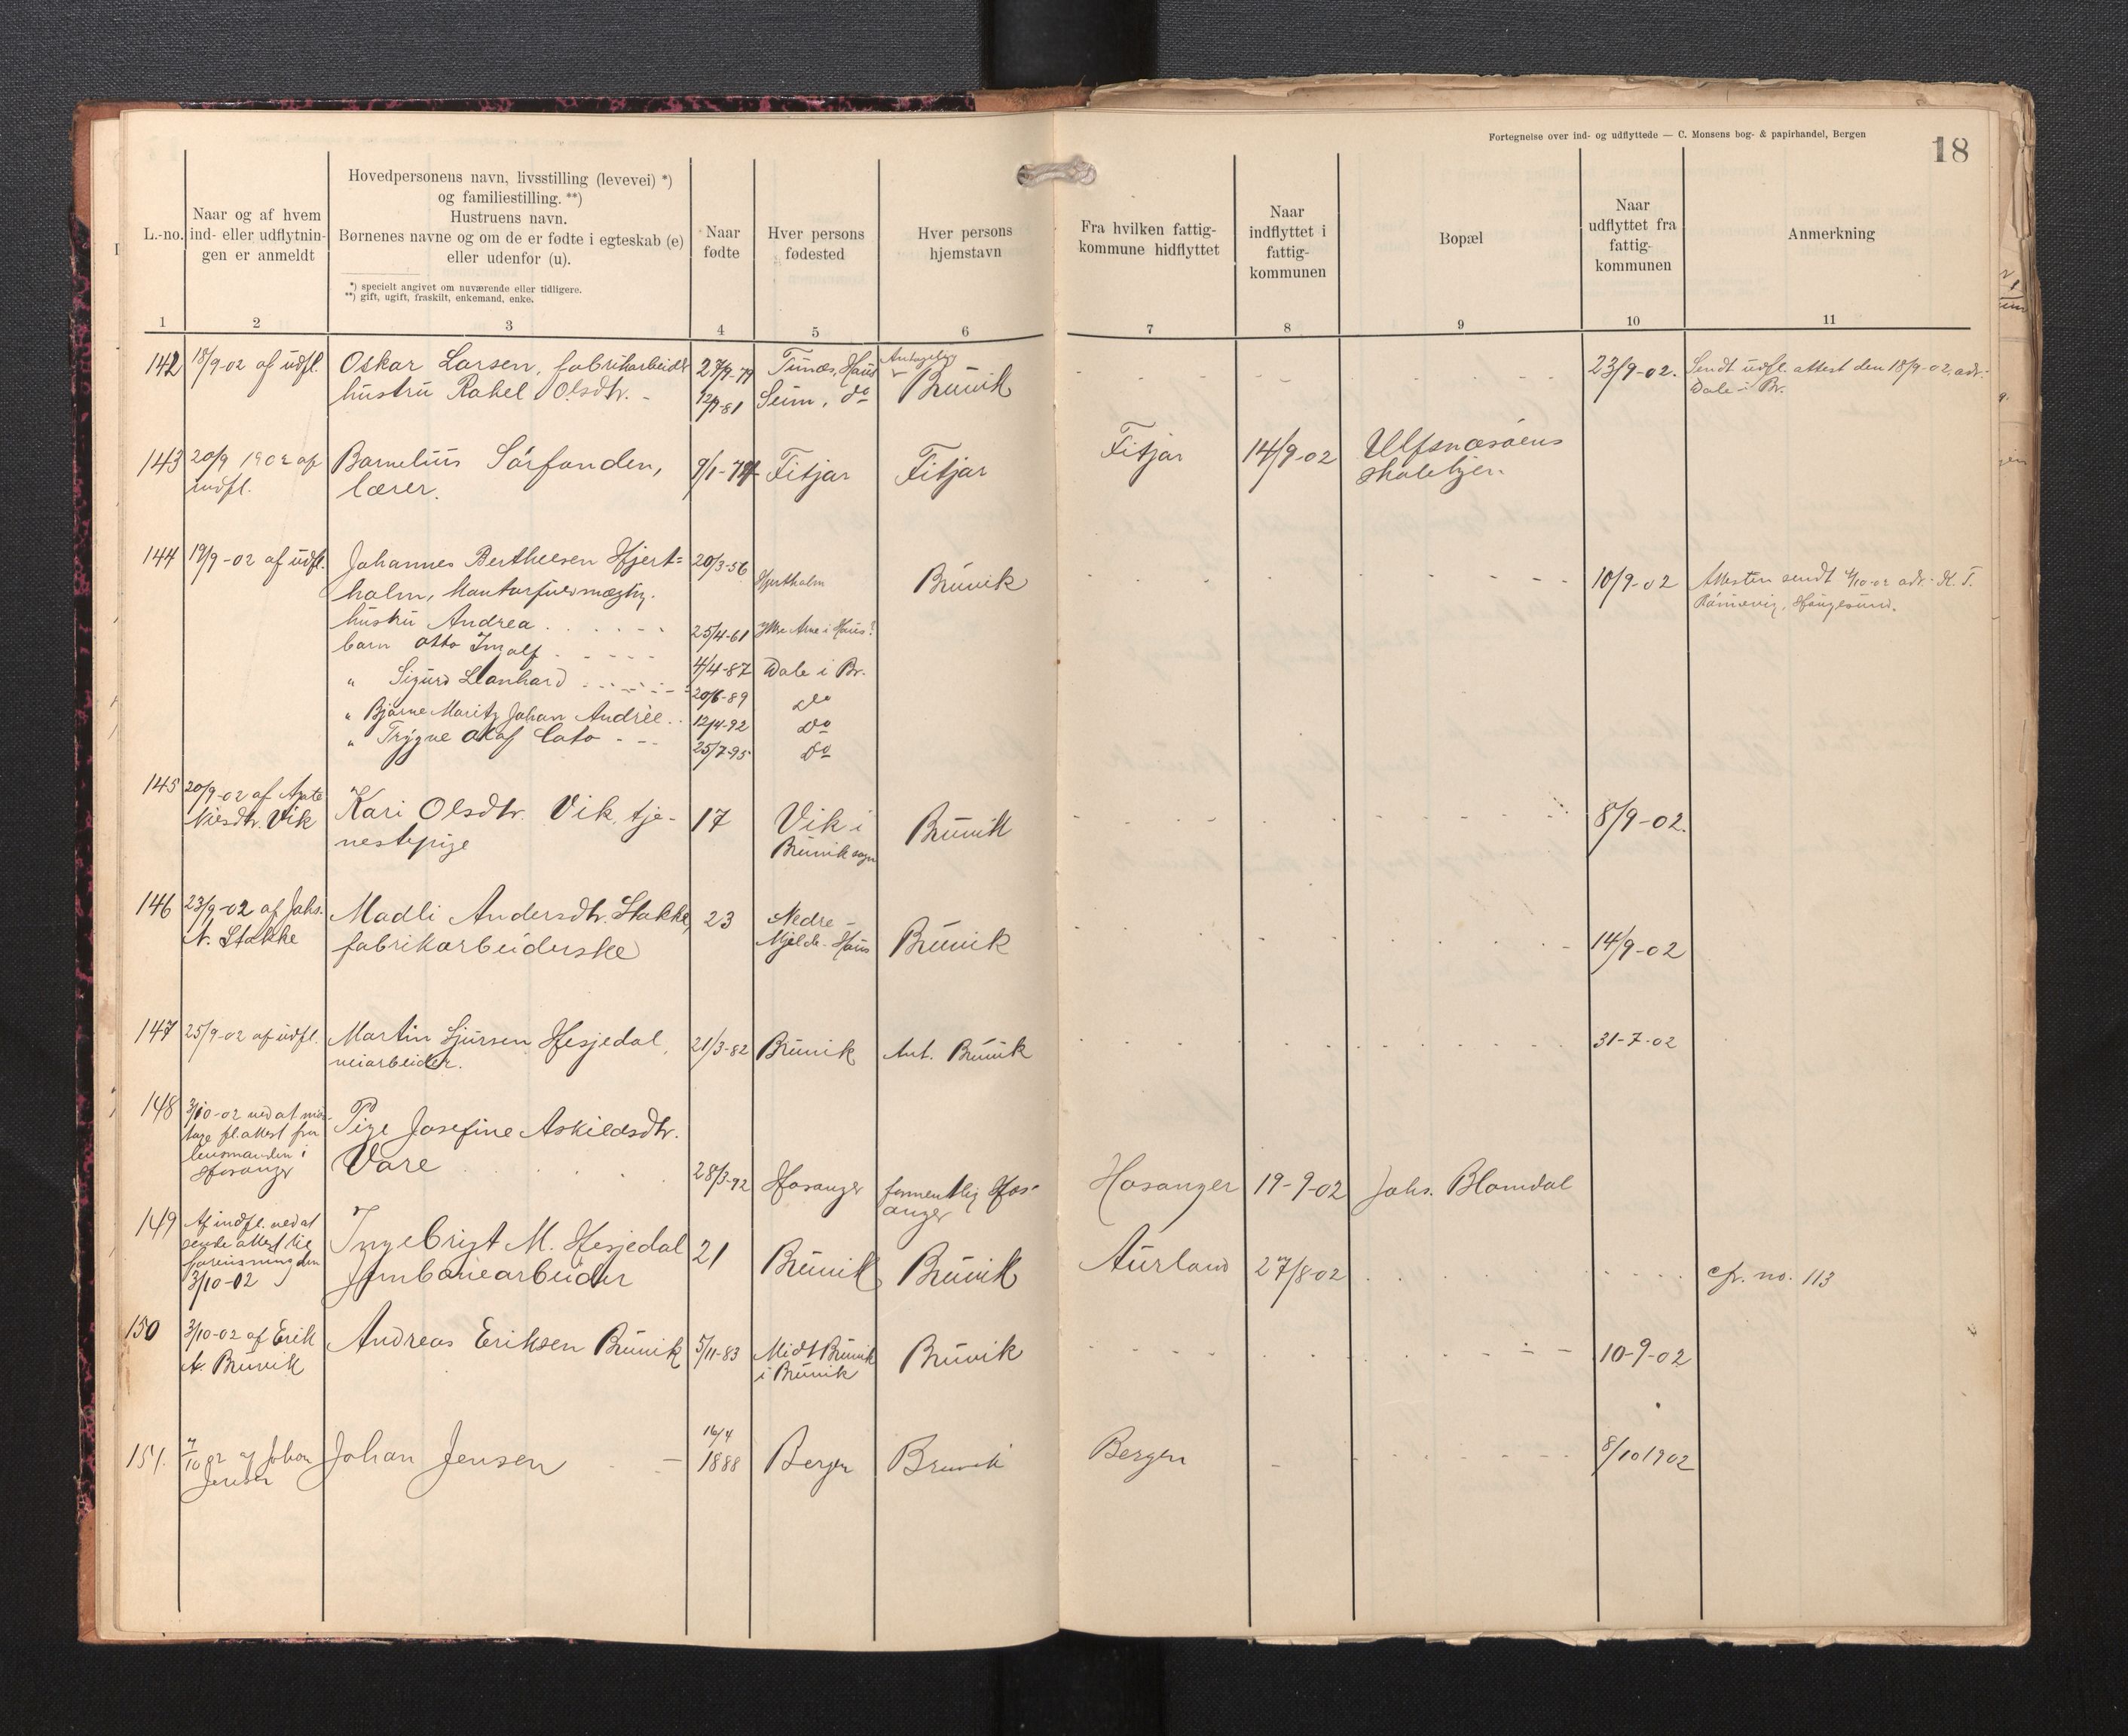 Fortegnelse over ind- og udflyttede — C. Monsens bog- & papirhandel, Bergen
18
L.-no.
Naar og af hvem
ind- eller udflytnin-
gen er anmeldt
Hovedpersonens navn, livsstilling (levevei) *)
og familiestilling. **)
Hustruens navn.
Børnenes navne og om de er fødte i egteskab (e)
eller udenfor (u).
*) specielt angivet om nuværende eller tidligere.
**) gift, ugift, fraskilt, enkemand, enke.
Naar
fødte
Hver persons
fødested
Hver persons
hjemstavn
Fra hvilken fattig-
kommune hidflyttet
Naar
indflyttet i
fattig-
kommunen
Bopæl
Naar
udflyttet fra
fattig-
kommunen
Anmerkning
1 2 3 4 5 6 7 8 9 10 11
142 18/9-02 af udfl. Oskar Larsen, fabrikarbeider 27/9-79 Tunæs, Haus Antagelig Bruvik 23/9-02. Sendt udfl. attest den 18/9-02, adr:
hustru Rakel Olsdtr. - 12/7-81 Seim, do Dale i Br.
143 20/9 1902 af Barnelius Sörfonden, 9/1-74 Fitjar Fitjar Fitjar 14/9-02 Ulfsnæsöens
indfl. lærer. skolebjer.
144 19/9-02 af udfl. Johannes Berthelsen Hjert= 20/3-56 Hjertholm Bruvik 10/9-02 Attesten sendt 4/10-02 adr. K. T.
holm, Haugesund.
hustru Andrea 25/4-61 Ytre Arne i Haus?
barn Otto Inalf 4/4-87 Dale i Br.
" Sigurd Leonhard 20/6-89 do
" Bjarne Moritz Johan Andrèe 12/4-92 Do
" Trygve Olaf Cato 25/7-95 Do
145 20/9-02 af Agate Kari Olsdtr. Vik, tje- 17 Vik i Bruvik 8/9-02.
Nilsdtr. Vik nestepige Bruvik sogn
146 23/9-02 af Johs. Madli Andersdtr. Stokke, 23 Nedre Bruvik 14/9-02
N. Stokke fabrikarbeiderske Mjelde - Haus
147 25/9-02 af udfl. Martin Sjursen Hesjedal, 21/3-82 Bruvik Ant. Bruvik 31-7-02
veiarbeider.
148 3/10-02 ved at mod-
tage fl.attest fra Pige Josefine Askildsdtr.
lensmanden i Vare 28/3-92 Hosanger formentlig Hos- Hosanger 19-9-02 Johs. Blomdal
Hosanger anger
149 Af indfl. ved at
sende attest til Ingebrigt M. Hesjedal 21 Bruvik Bruvik Aurland 27/8-02 cfr. no. 113
forevisning den Jernbanearbeider
3/10-02
150 3/10-02 af Erik Andreas Eriksen Bruvik 5/11-83 Midt Bruvik Bruvik 10-9-02
A. Bruvik i Bruvik
151. 7/10 02 af Johan Johan Jensen 16/4 1888 Bergen Bruvik Bergen 8/10 1902
Jensen